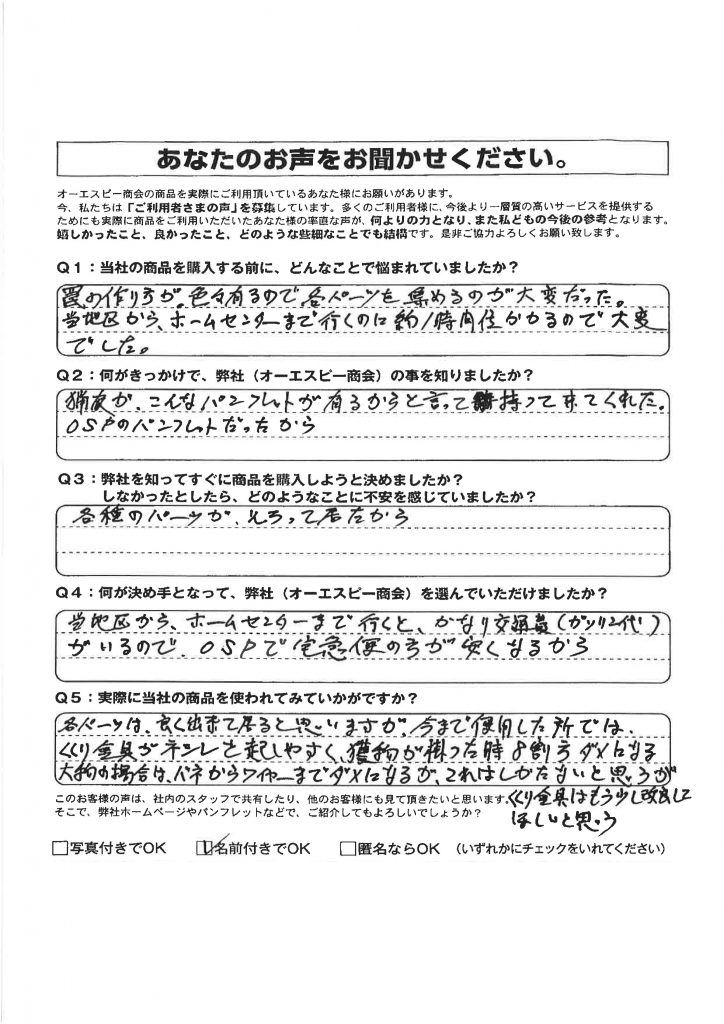 あなたのお声をお聞かせください。
オーエスピー商会の商品を実際にご利用頂いているあなた様にお願いがあります。
今、私たちは「ご利用者さまの声」を募集しています。多くのご利用者様に、今後より一層質の高いサービスを提供する
ためにも実際に商品をご利用いただいたあなた様の率直な声が、何よりの力となり、また私どもの今後の参考となります。
嬉しかったこと、良かったこと、どのような些細なことでも結構です。是非ご協力よろしくお願い致します。
Q1：当社の商品を購入する前に、どんなことで悩まれていましたか？
罠の作り方が。色々有るので各パーツを集めるのが大変だった。
当地区から、ホームセンターまで行くのに約1時間位かかるので大変
でした。
Q2：何がきっかけで、弊社（オーエスピー商会）の事を知りましたか？
猟友が、こんなパンフレットが有るからと言って持って来てくれた。
OSPのパンフレットだったから
Q3：弊社を知ってすぐに商品を購入しようと決めましたか？
しなかったとしたら、どのようなことに不安を感じていましたか？
各種のパーツが、そろって居たから
Q4：何が決め手となって、弊社（オーエスピー商会）を選んでいただけましたか？
当地区から、ホームセンターまで行くと、かなり交通費（ガソリン代）
がいるので、OSPで宅急便の方が安くなるから
Q5：実際に当社の商品を使われてみていかがですか？
各パーツは、良く出来て居ると思いますが、今まで使用した所では、
くくり金具がネジレを起しやすく、獲物が掛った時8割方ダメになる
大物の場合は、バネからワイヤーまでダメになるが、これはしかたないと思うが
このお客様の声は、社内のスタッフで共有したり、他のお客様にも見て頂きたいと思います。くくり金具はもう少し改良して
そこで、弊社ホームページやパンフレットなどで、ご紹介してもよろしいでしょうか？ ほしいと思う
□写真付きでOK ☑名前付きでOK □匿名ならOK （いずれかにチェックをいれてください）